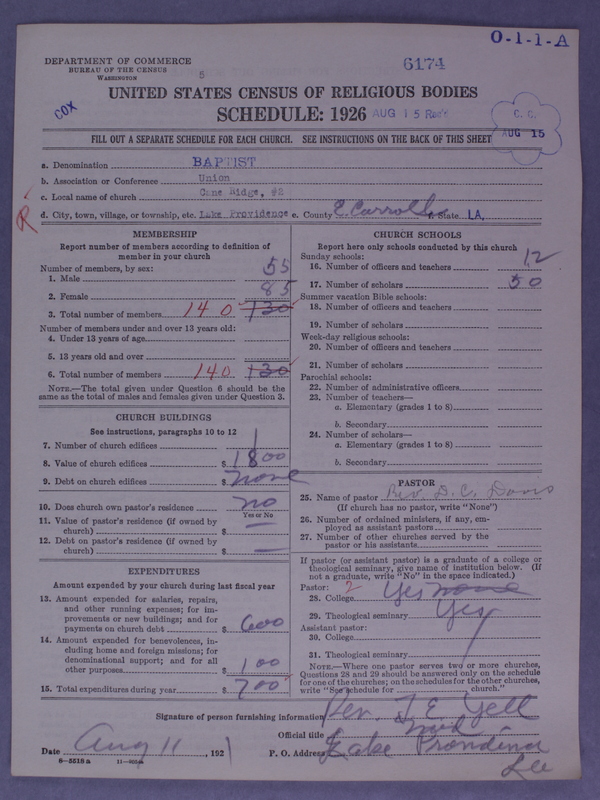 O-1-1-A
DEPARTMENT OF COMMERCE
BUREAU OF THE CENSUS
WASHINGTON
6174
5
UNITED STATES CENSUS OF RELIGIOUS BODIES
COX
SCHEDULE: 1926 AUG 15 Rec'd
C. C.
AUG 15
FILL OUT A SEPARATE SCHEDULE FOR EACH CHURCH. SEE INSTRUCTIONS ON THE BACK OF THIS SHEET
a. Denomination BAPTIST
b. Association or Conference Union
c. Local name of church Cane Ridge, #2
R
d. City, town, village, or township, etc. Lake Providence e. County E. Carroll f. State LA.
MEMBERSHIP
Report number of members according to definition of
member in your church
Number of members, by sex:
1. Male 55
2. Female 85
3. Total number of members 140 130
Number of members under and over 13 years old:
4. Under 13 years of age
5. 13 years old and over
6. Total number of members 140 130
NOTE.—The total given under Question 6 should be the
same as the total of males and females given under Question 3.
CHURCH BUILDINGS
See instructions, paragraphs 10 to 12
7. Number of church edifices 1
8. Value of church edifices $ 1800
9. Debt on church edifices $ none
10. Does church own pastor's residence no
Yes or No
11. Value of pastor's residence (if owned by
church) $ —
12. Debt on pastor's residence (if owned by
church) $ —
EXPENDITURES
Amount expended by your church during last fiscal year
13. Amount expended for salaries, repairs,
and other running expenses; for im-
provements or new buildings; and for
payments on church debt $ 600
14. Amount expended for benevolences, in-
cluding home and foreign missions; for
denominational support; and for all
other purposes $ 100
15. Total expenditures during year $ 700
CHURCH SCHOOLS
Report here only schools conducted by this church
Sunday schools:
16. Number of officers and teachers 12
17. Number of scholars 50
Summer vacation Bible schools:
18. Number of officers and teachers
19. Number of scholars
Week-day religious schools:
20. Number of officers and teachers
21. Number of scholars
Parochial schools:
22. Number of administrative officers
23. Number of teachers—
a. Elementary (grades 1 to 8)
b. Secondary
24. Number of scholars—
a. Elementary (grades 1 to 8)
b. Secondary
PASTOR
25. Name of pastor Rev. D. C. Davis
(If church has no pastor, write "None")
26. Number of ordained ministers, if any, em-
ployed as assistant pastors
27. Number of other churches served by the
pastor or his assistants
If pastor (or assistant pastor) is a graduate of a college or
theological seminary, give name of institution below. (If
not a graduate, write "No" in the space indicated.)
Pastor: 2
28. College Yes none
29. Theological seminary Yes
Assistant pastor:
30. College
31. Theological seminary
NOTE.—Where one pastor serves two or more churches,
Questions 28 and 29 should be answered only on the schedule
for one of the churches; on the schedules for the other churches,
write "See schedule for church."
Signature of person furnishing information Rev. J. E. Yell
Official title
Date Aug 11, 192
P. O. Address Lake Providence
8-5518a 11-